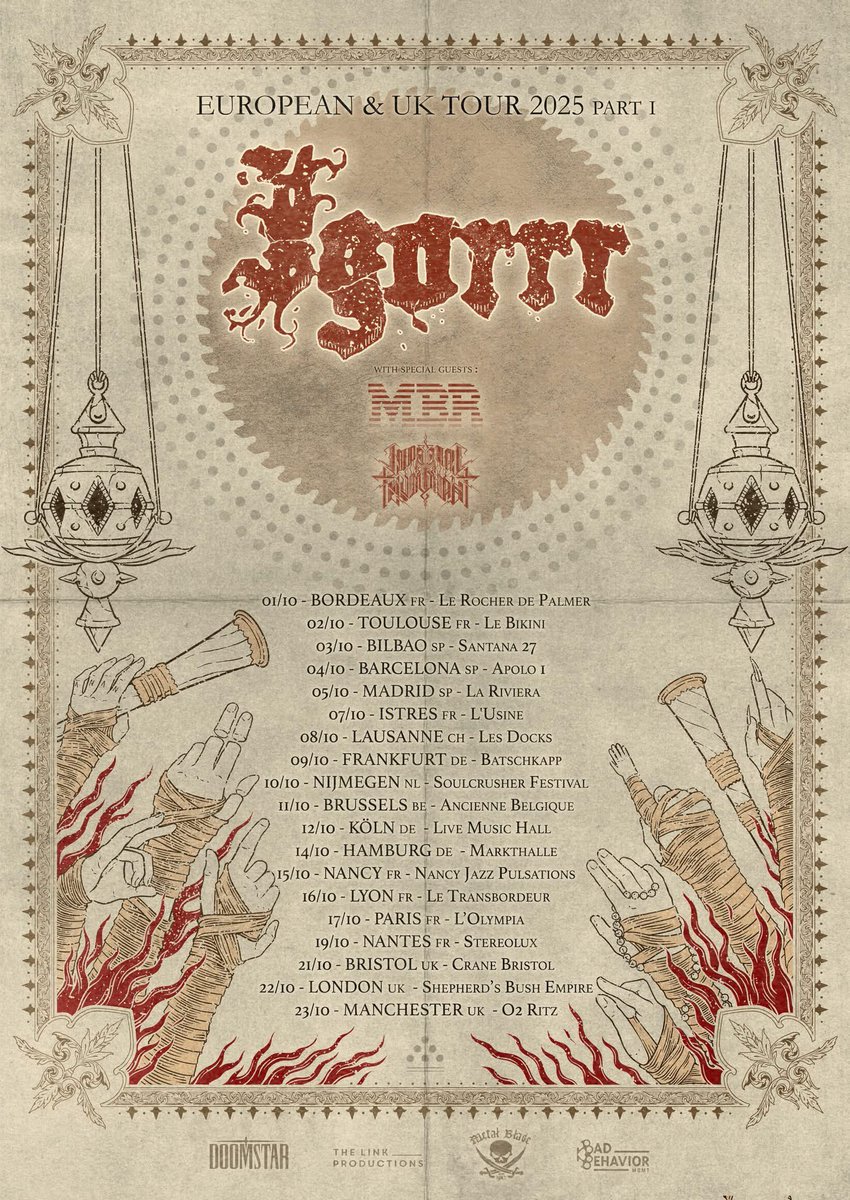 EUROPEAN & UK TOUR 2025 PART I
Igorrr
WITH SPECIAL GUESTS :
MBR
IMPERIAL TRIUMPHANT
01/10 - BORDEAUX FR - LE ROCHER DE PALMER
02/10 - TOULOUSE FR - LE BIKINI
03/10 - BILBAO SP - SANTANA 27
04/10 - BARCELONA SP - APOLO 1
05/10 - MADRID SP - LA RIVIERA
07/10 - ISTRES FR - L'USINE
08/10 - LAUSANNE CH - LES DOCKS
09/10 - FRANKFURT DE - BATSCHKAPP
10/10 - NIJMEGEN NL - SOULCRUSHER FESTIVAL
11/10 - BRUSSELS BE - ANCIENNE BELGIQUE
12/10 - KÖLN DE - LIVE MUSIC HALL
14/10 - HAMBURG DE - MARKTHALLE
15/10 - NANCY FR - NANCY JAZZ PULSATIONS
16/10 - LYON FR - LE TRANSBORDEUR
17/10 - PARIS FR - L'OLYMPIA
19/10 - NANTES FR - STEREOLUX
21/10 - BRISTOL UK - CRANE BRISTOL
22/10 - LONDON UK - SHEPHERD'S BUSH EMPIRE
23/10 - MANCHESTER UK - O2 RITZ
DOOMSTAR
THE LINK PRODUCTIONS
Metal Blade
BAD BEHAVIOR MGMT